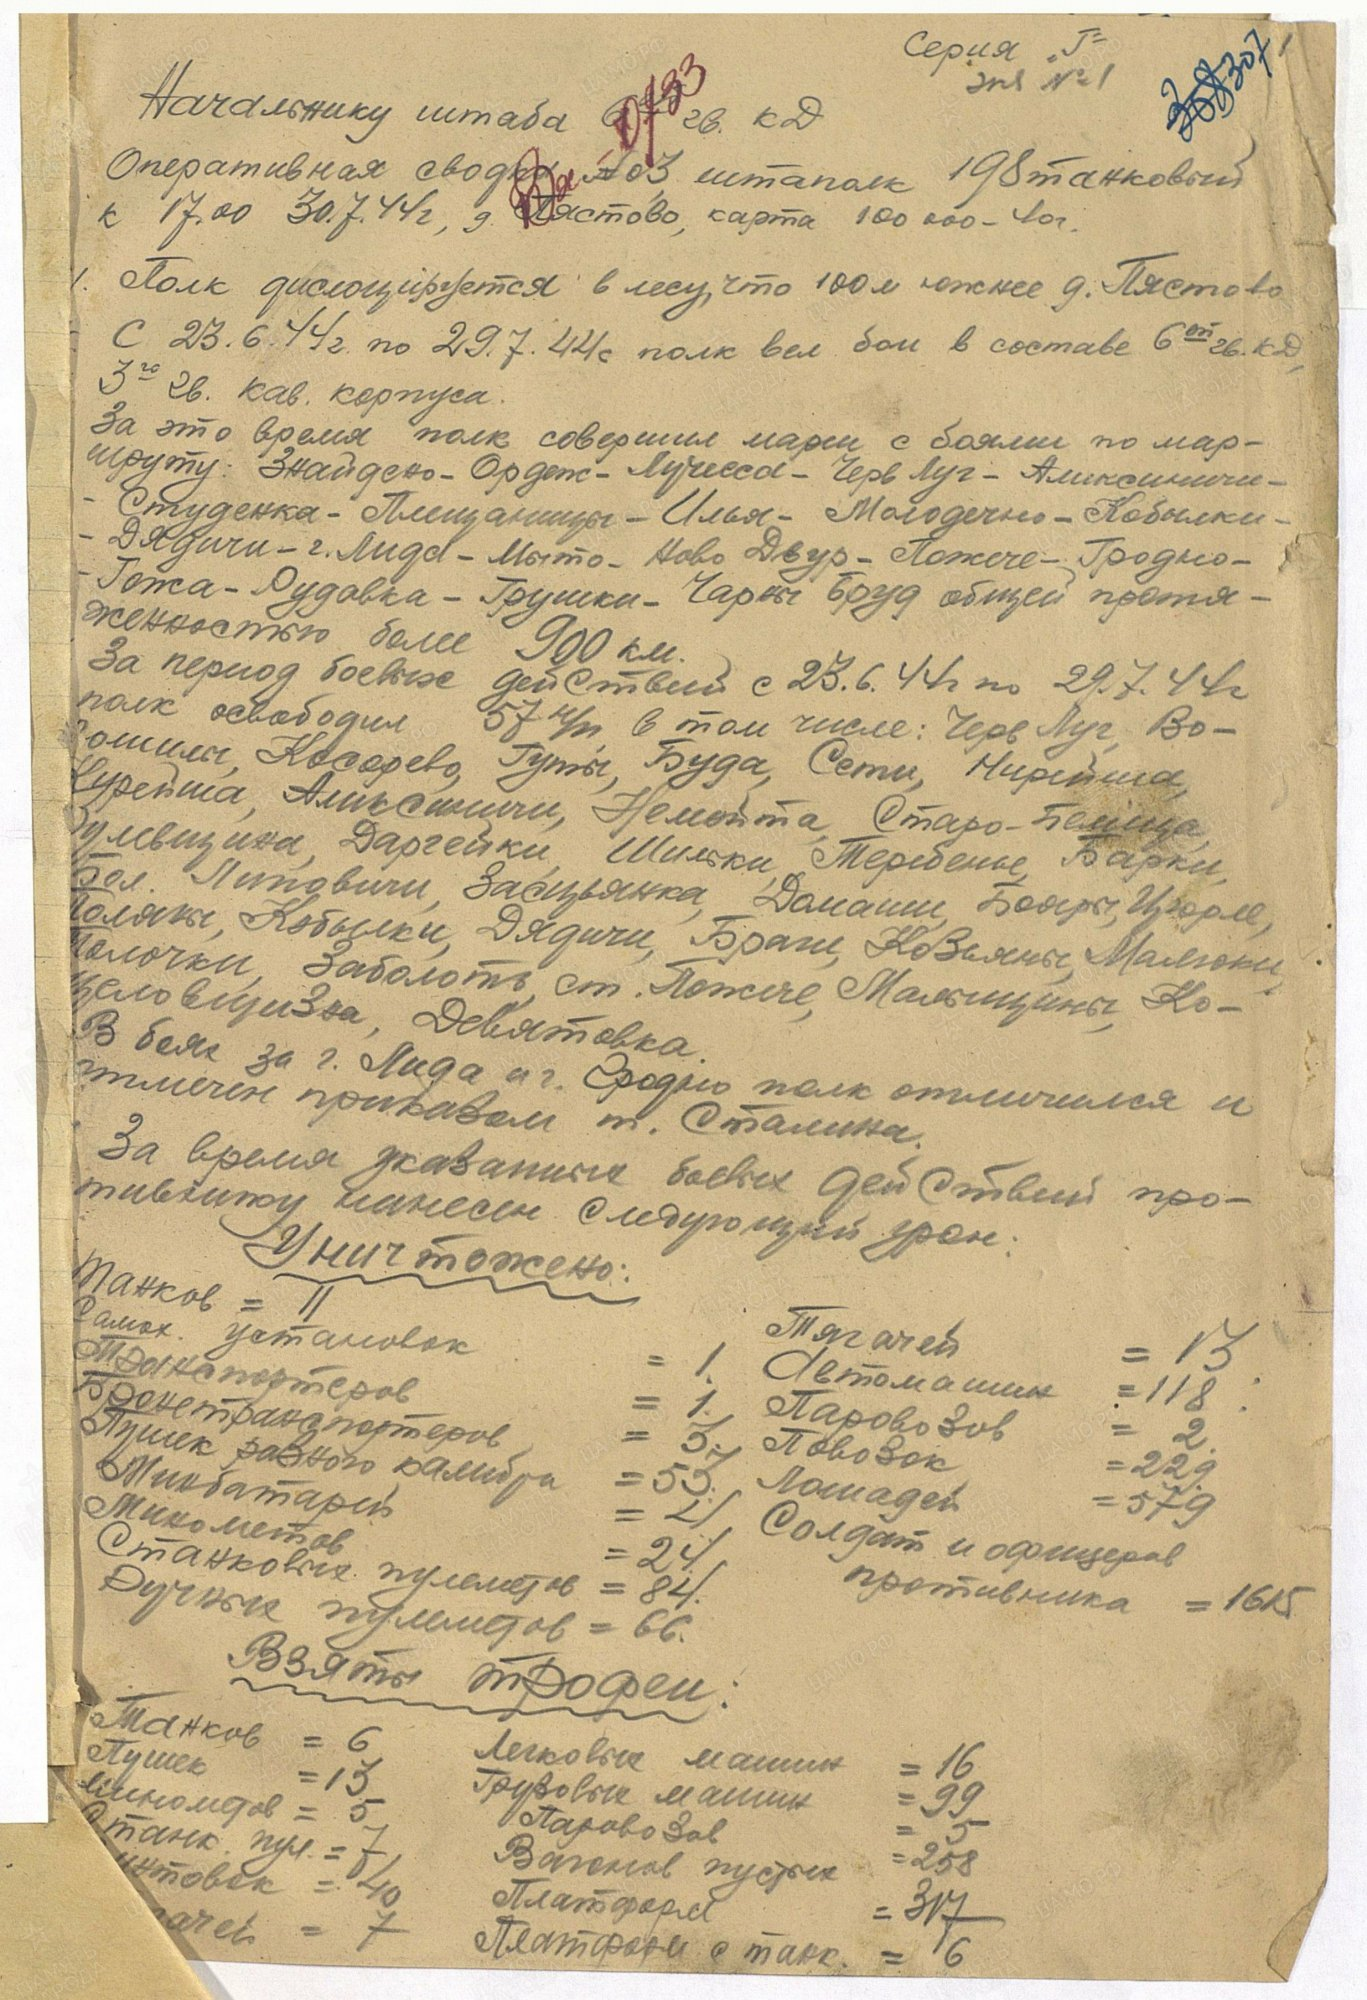 Серия "Г"
экз №1
Начальнику штаба 6 гв. КД
Оперативная сводка №03, штаполк 198 танковый
к 17.00 30.7.44г, д. Пястово, карта 100 000-40г.
1. Полк дислоцируется в лесу, что 100м южнее д. Пястово
С 23.6.44г. по 29.7.44г полк вел бои в составе 6ой гв. КД,
3го гв. кав. корпуса.
За это время полк совершил марш с боями по мар-
шруту: Знайдено - Ордеж - Лучесса - Черв Луг - Аликсиничи -
- Студенка - Плещаницы - Илья - Молодечно - Кобылки -
- Дядичи - г. Лида - Мыто - Ново Двур - Пожече - Гродно -
- Гожа - Рудавка - Грушки - Чарны Бруд общей протя-
женностью более 900 км.
За период боевых действий с 23.6.44г по 29.7.44г
полк освободил 57 н/п в том числе: Черв Луг, Во-
рошилы, Косарево, Гуты, Буда, Сети,
Курейша, Аликсиничи, Немойта, Старо-Белица,
Даргейки, Шильки, Теребенье, Барки,
Бол. Липовичи, Засцьянка, Домаши, Бояры,
Поляны, Кобылки, Дядичи, Браги, Козьяны, Малюки,
Полочки, Заболоть, ст. Пожече, Малыщины, Ко-
Девятовка.
В боях за г. Лида и г. Гродно полк отличился и
отмечен приказом т. Сталина.
За время указанных боевых действий про-
тивнику нанесен следующий урон:
Уничтожено:
Танков = 11
Самох. установок = 1.
Транспортеров = 1.
Бронетранспортеров = 3.
Пушек разного калибра = 53.
Минбатарей = 4
Минометов = 24.
Станковых пулеметов = 84.
Ручных пулеметов = 66.
Тягачей = 13
Автомашин = 118
Паровозов = 2
Повозок = 229
Лошадей = 579
Солдат и офицеров
противника = 1615
Взяты трофеи:
Танков = 6
Пушек = 13
Минометов = 5
Станк. пул. = 7
Винтовок = 40
Тягачей = 7
Легковых машин = 16
Грузовых машин = 99
Паровозов = 5
Вагонов пустых = 258
Платформ = 317
Платформ с танк. = 6